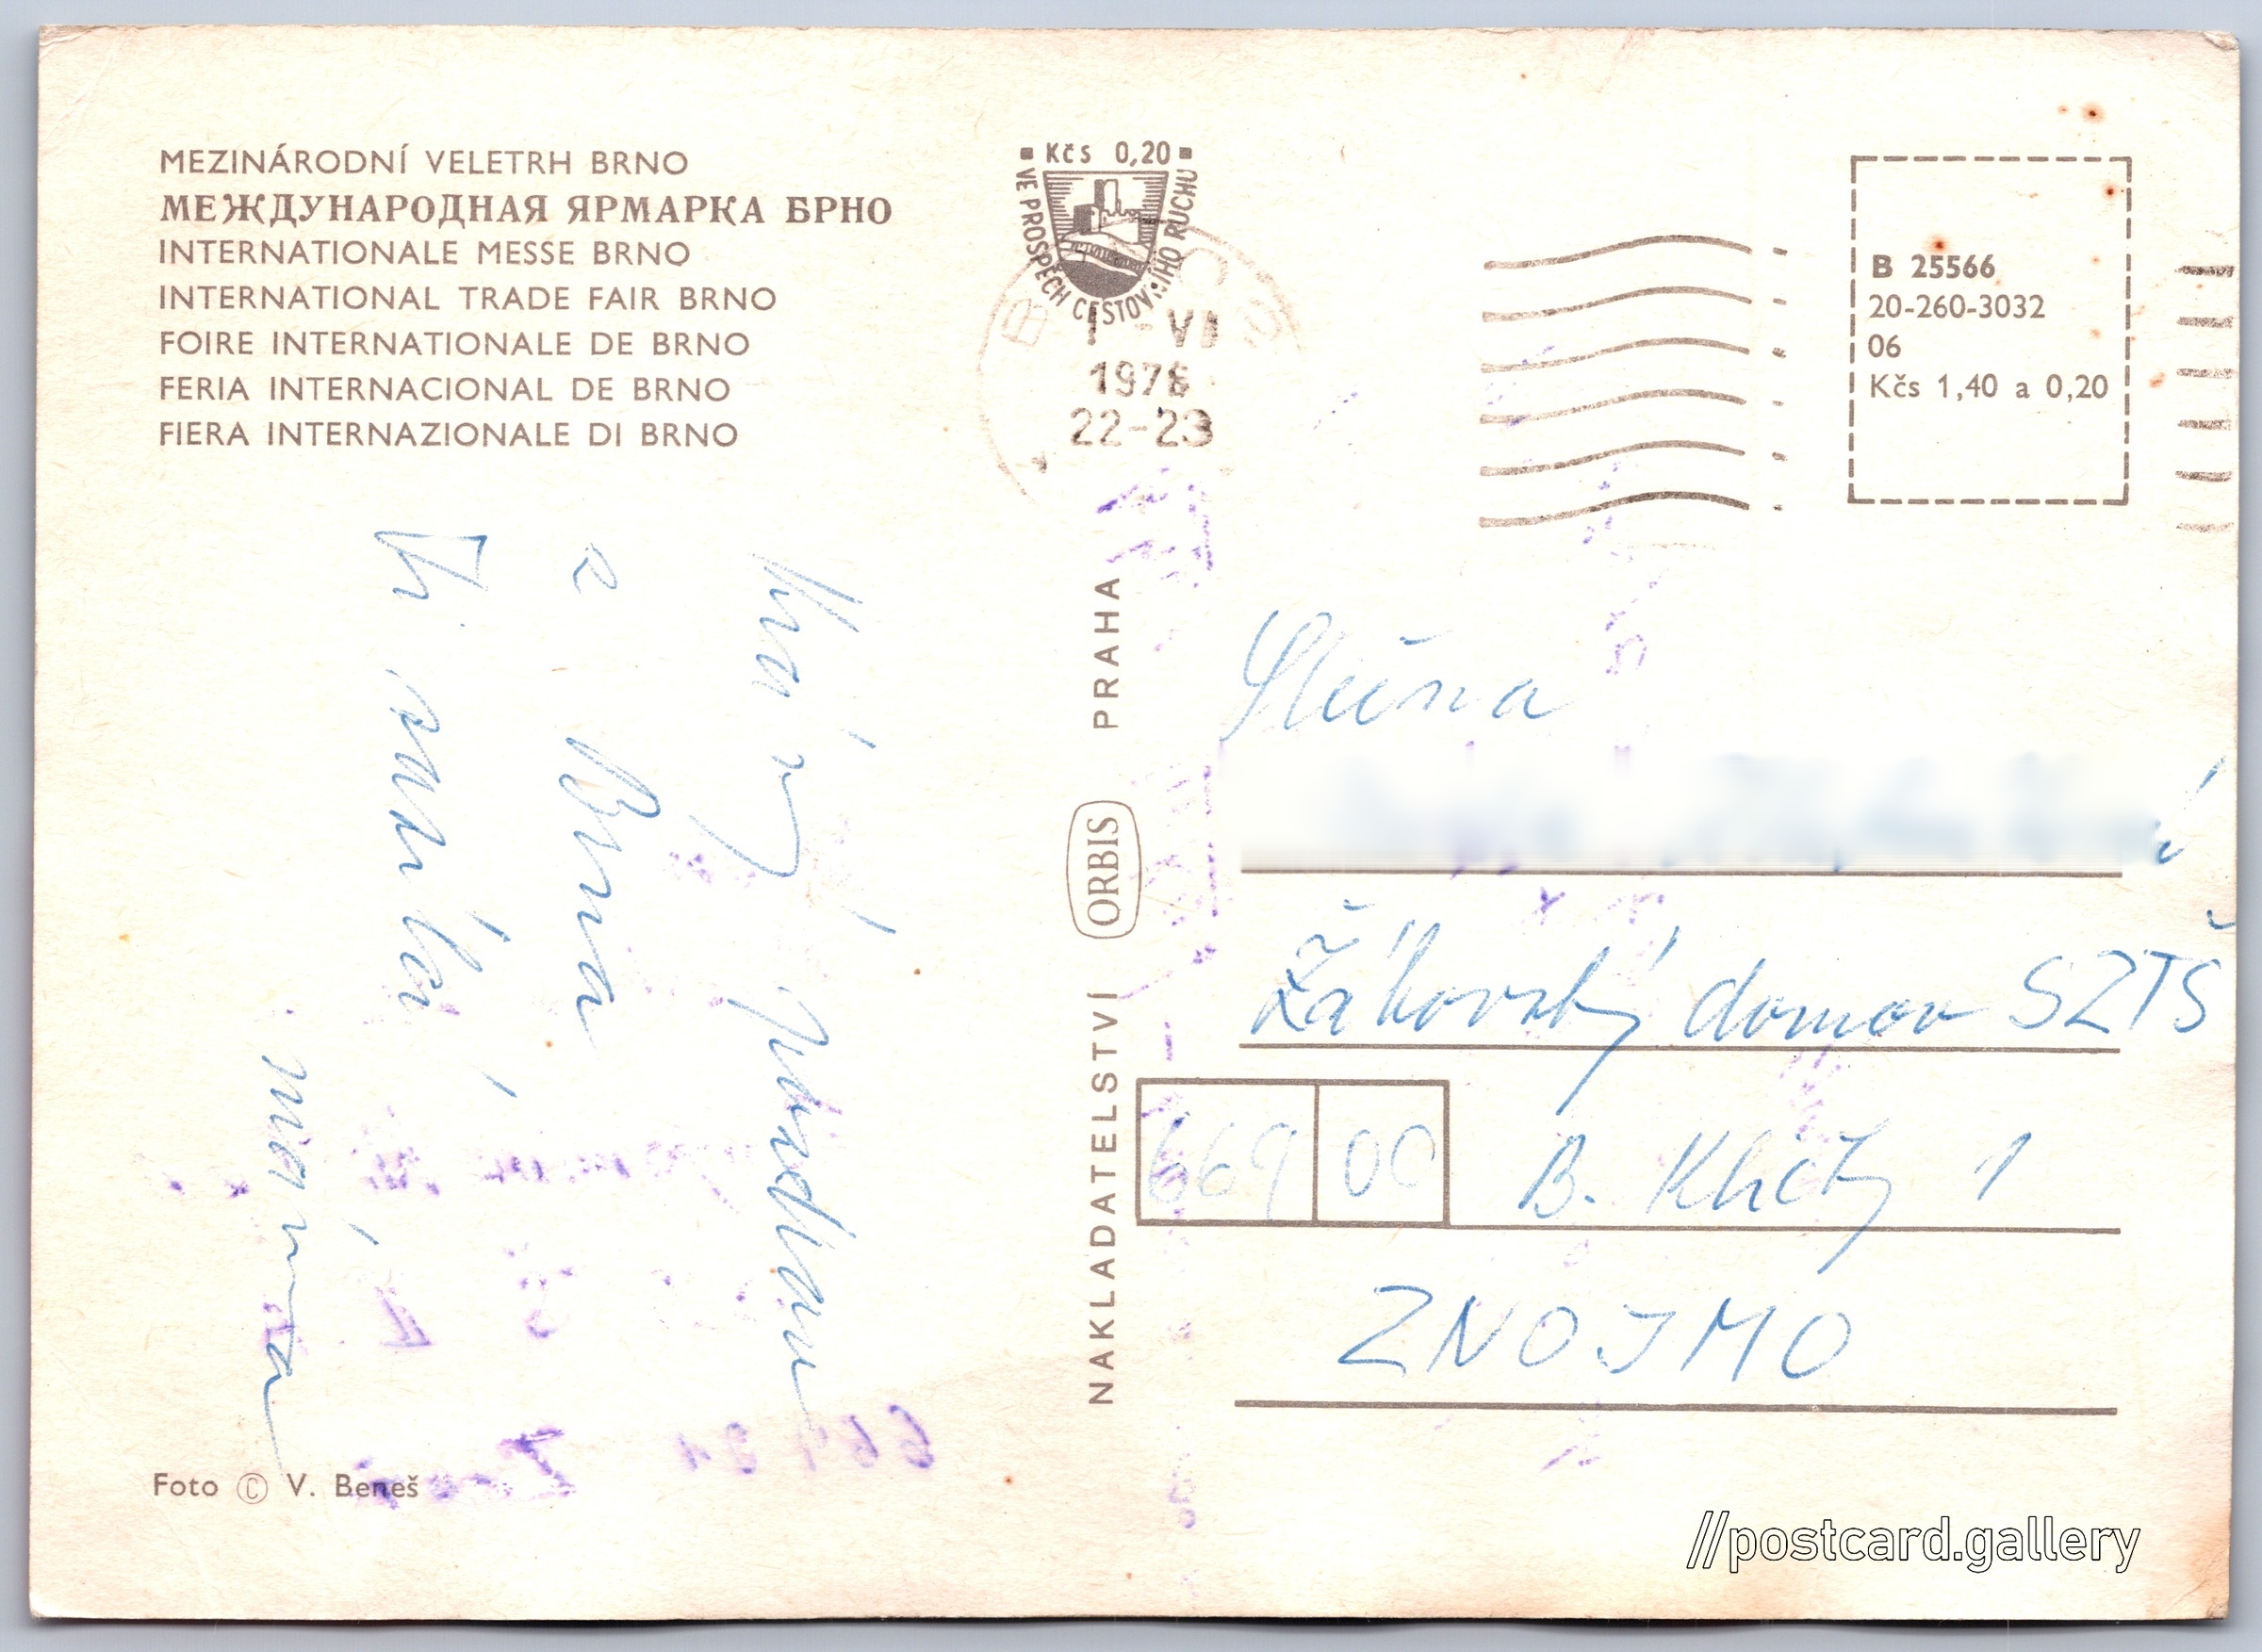 MEZINÁRODNÍ VELETRH BRNO
МЕЖДУНАРОДНАЯ ЯРМАРКА БРНО
INTERNATIONALE MESSE BRNO
INTERNATIONAL TRADE FAIR BRNO
FOIRE INTERNATIONALE DE BRNO
FERIA INTERNACIONAL DE BRNO
FIERA INTERNAZIONALE DI BRNO
Kčs 0,20
VE PROSPĚCH CESTOV.IHO RUCHU
VI
1978
22-23
B 25566
20-260-3032
06
Kčs 1,40 a 0,20
Krásný pozdrav
z Brna
Ti posílá
mama
Foto © V. Beneš
NAKLADATELSTVÍ ORBIS PRAHA
Slečna
Žákovský domov SZTŠ
669 00
1
ZNOJMO
669 21
//postcard.gallery